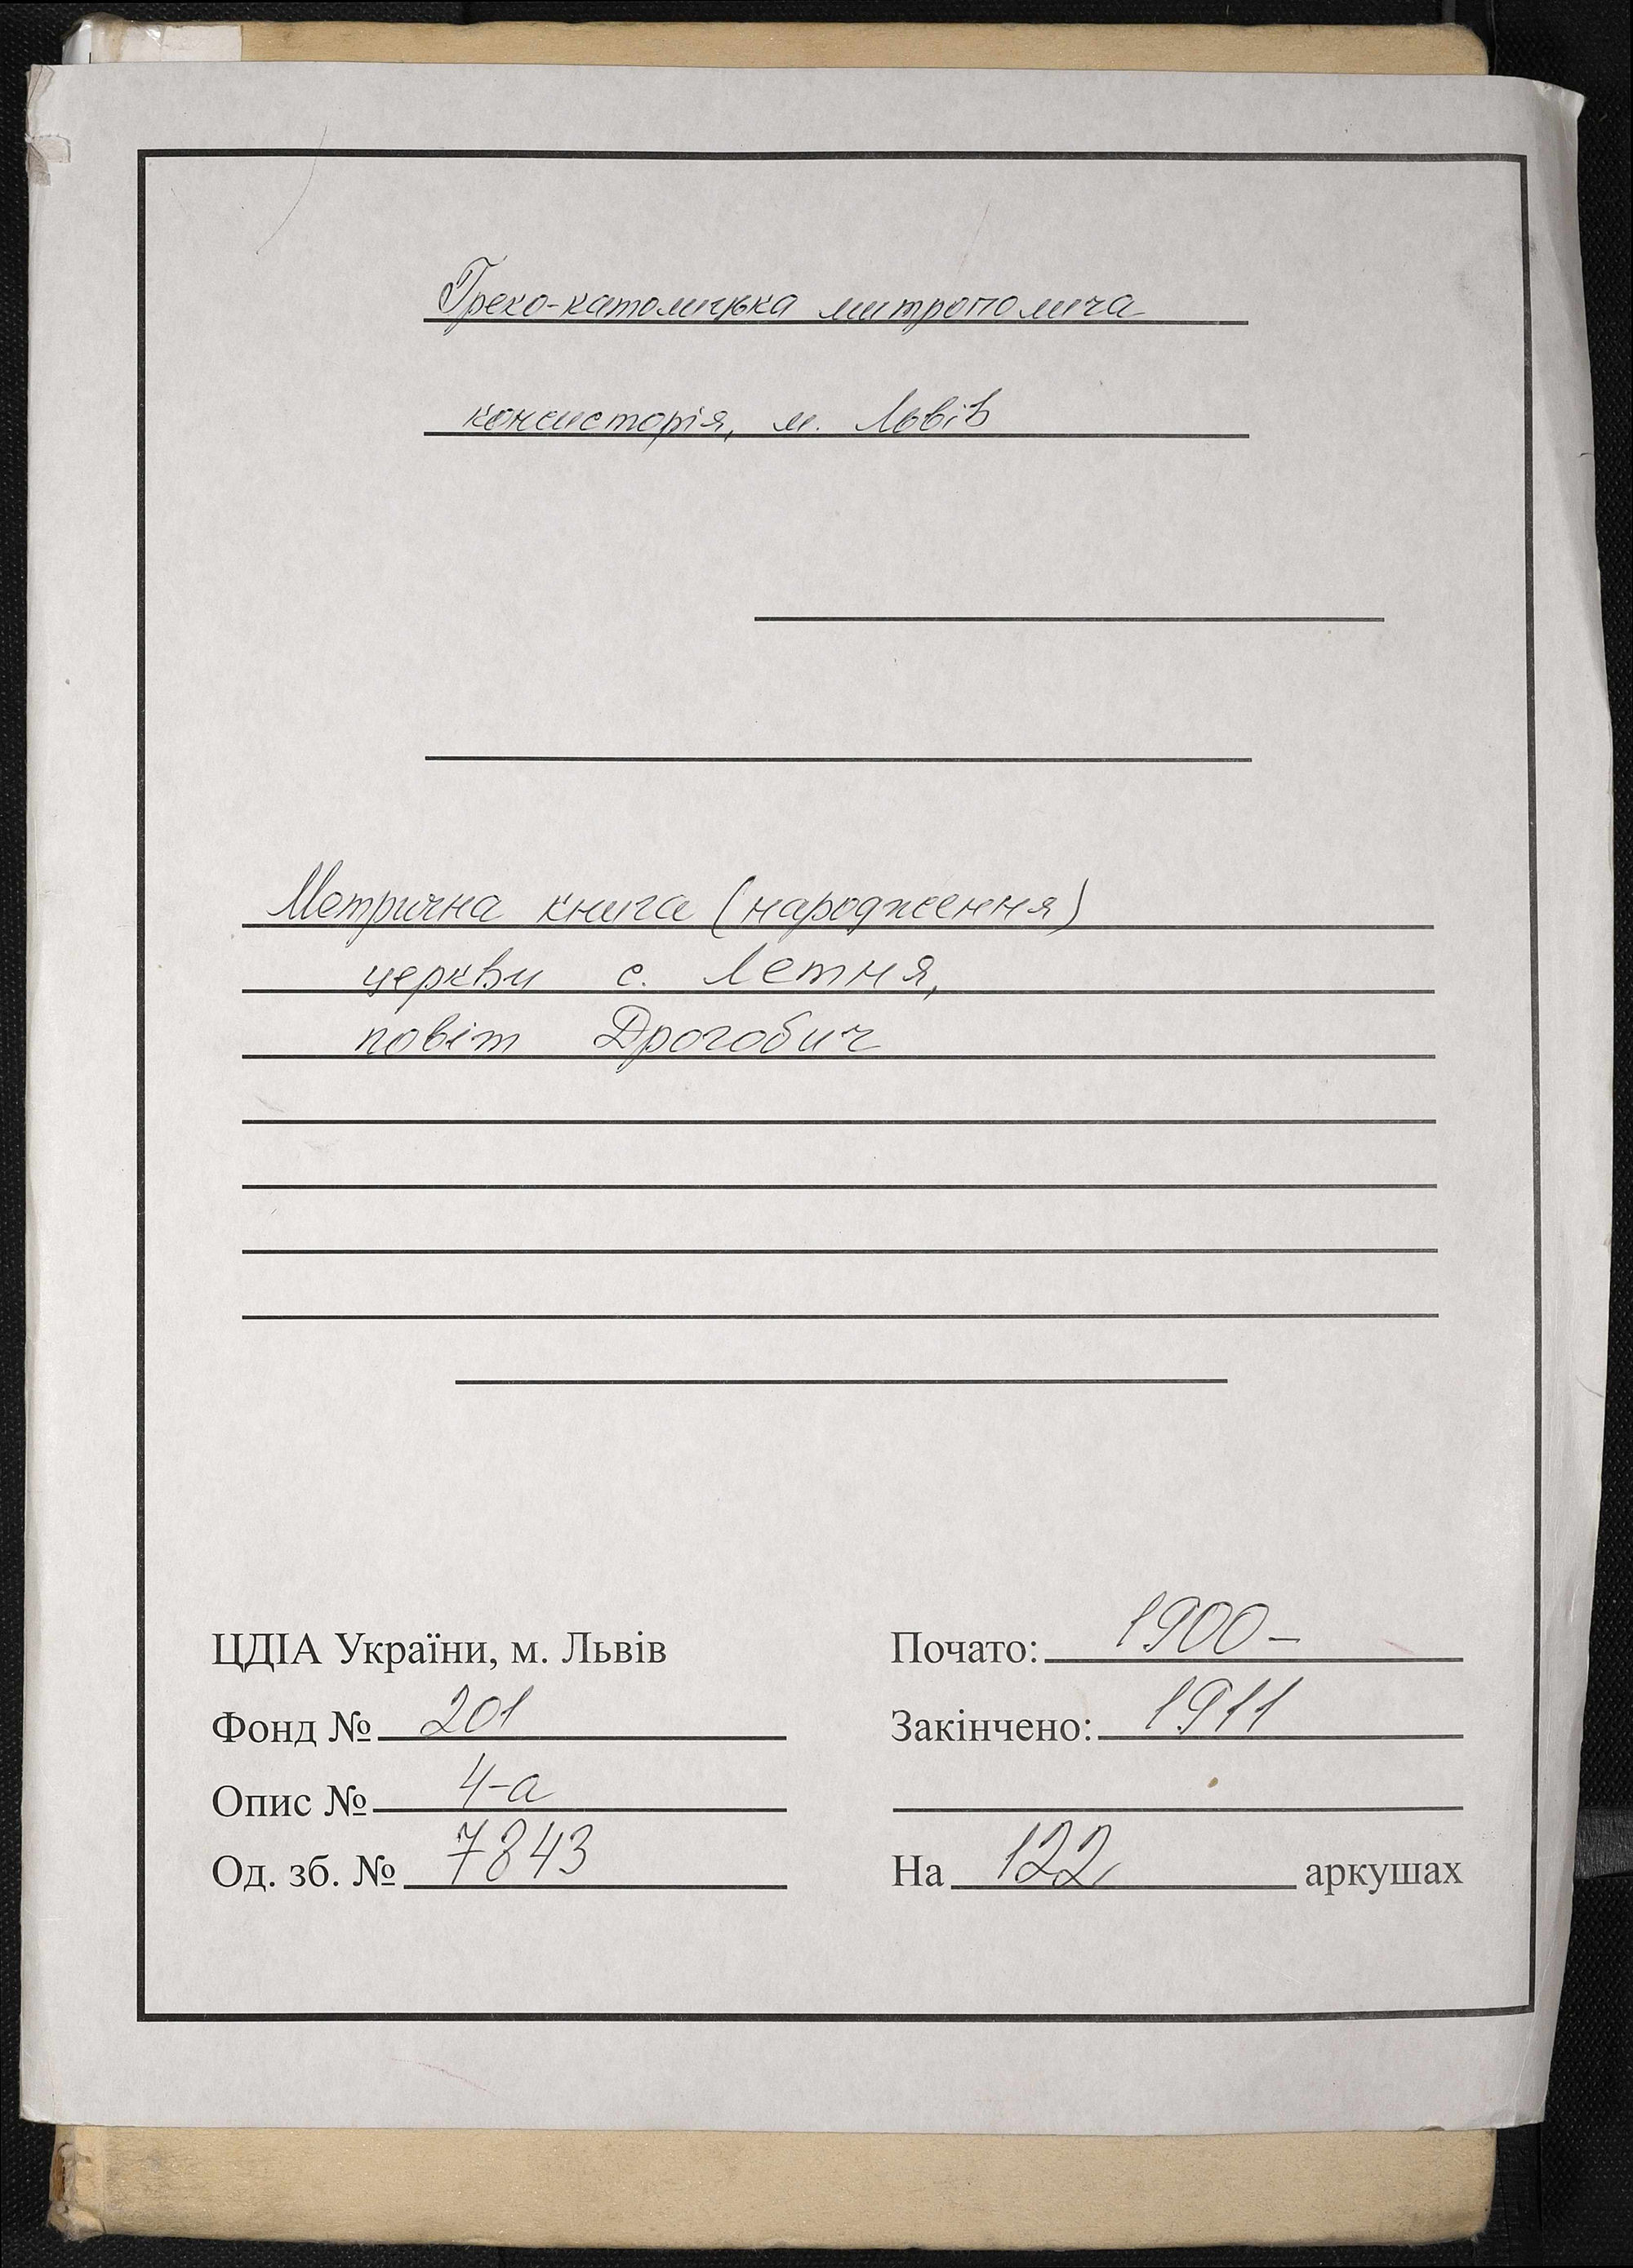 Греко-католицька митрополича
консисторія, м. Львів
Метрична книга (народження)
церкви с. Летня,
повіт Дрогобич
ЦДІА України, м. Львів
Фонд № 201
Опис № 4-а
Од. зб. № 7843
Почато: 1900-
Закінчено: 1911
На 122 аркушах